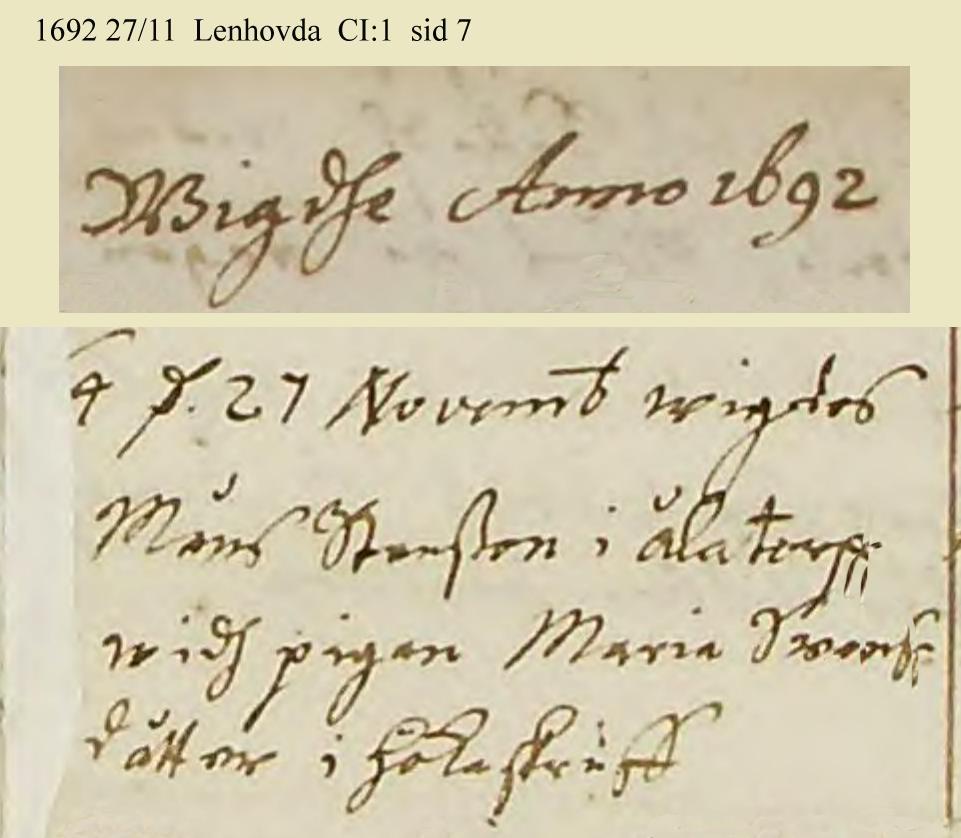 1692 27/11 Lenhovda CI:1 sid 7
Wigdhe Anno 1692
4 d. 27 Novemb wigdes
Måns i ålatorp
widh pigan Maria Swens
dåtter i